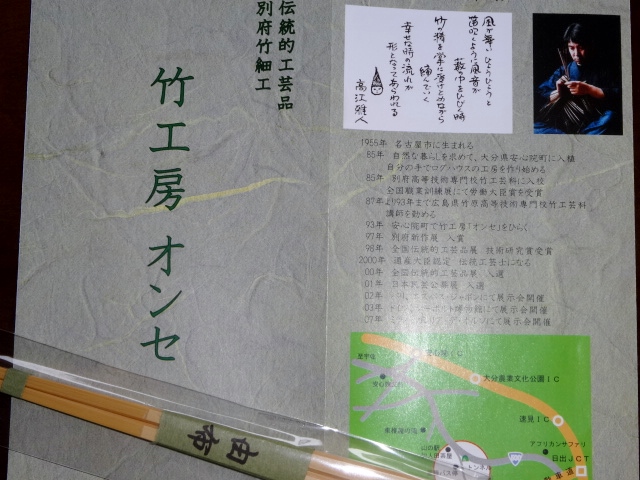 伝統的工芸品
別府竹細工
竹工房 オンセ
風が舞い ひょうひょうと
笛吹くように風音が
藪の中をひびく時
竹の精を掌に浮けとめながら
編んでいく
幸せな時の流れが
形となってあらわれる
高江雅人
1955年 名古屋市に生まれる
85年 自然な暮らしを求めて、大分県安心院町に入植
自分の手でログハウスの工房を作り始める
85年 別府高等技術専門校竹工芸科に入校
全国職業訓練展にて労働大臣賞を受賞
87年より1993年まで広島県竹原高等技術専門校竹工芸科
講師を勤める
93年 安心院町で竹工房「オンセ」をひらく
97年 別府新作展 入賞
98年 全国伝統的工芸品展 技術研究賞受賞
2000年 通産大臣認定 伝統工芸士になる
00年 全国伝統的工芸品展 入選
01年 日本民芸公募展 入選
02年 にて展示会開催
03年 博物館にて展示会開催
07年 にて展示会開催
至宇佐
安心院IC
大分農業文化公園IC
速見IC
アフリカンサファリ
日出JCT
トンネル
自動車道
由布